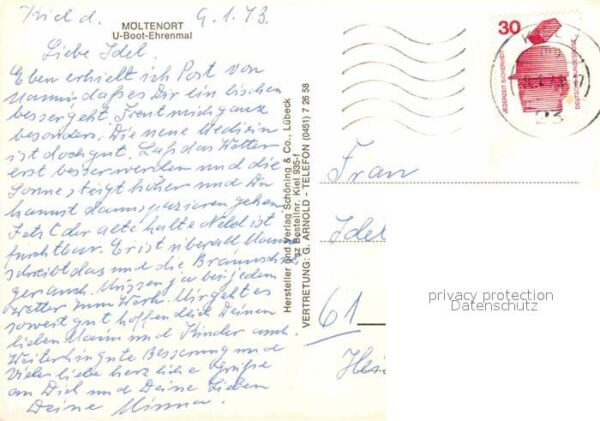 Kiel d. 9.1.73.
MÖLTENORT
U-Boot-Ehrenmal
Liebe Idel.
Eben erhielt ich Post von
daß es Dir ein bischen
besser geht. Freut mich ganz
besonders. Die neue Medizin
ist doch gut. Laß das Wetter
erst besser werden und die
Sonne steigt höher und Du
kannst dann spazieren gehen
Jetzt der alte kalte Nebel ist
furchtbar. Er ist überall Mann
schreibt das und die
auch. Müssen ja bei jedem
Wetter zum Markt. Mir geht es
soweit gut hoffentlich Deinen
lieben Mann und Kinder auch.
Weiterhin gute Besserung und
Viele liebe herzliche Grüße
an Dich und Deine Lieben
Deine Minna.
Hersteller und Verlag Schöning & Co., Lübeck
sz Bestellnr. Kiel 935-f
VERTRETUNG: G. ARNOLD - TELEFON (0451) 7 26 58
30
JEDERZEIT SICHERHEIT
DEUTSCHE BUNDESPOST
23
Frau
Idel
61
privacy protection
Datenschutz